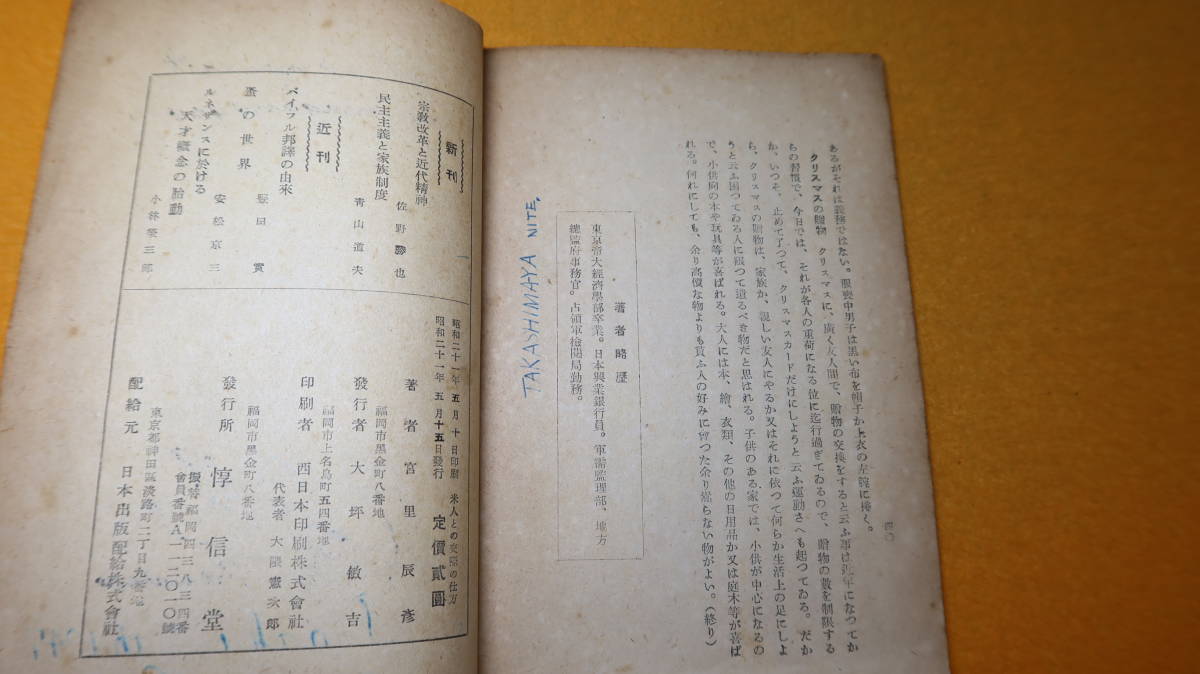 あるがそれは義務ではない。服喪中男子は黒い布を帽子か上衣の左腕に捲く。
クリスマスの贈物 クリスマスに、廣く友人間で、贈物の交換をすると云ふ事は近年になつてか
らの習慣で、今日では、それが各人の重荷になる位に迄行過ぎてゐるので、贈物の数を制限する
か、いつそ、止めて了つて、クリスマスカードだけにしようと云ふ運動さへも起つてゐる。だか
ら、クリスマスの贈物は、家族か、親しい友人にやるか又はそれに依つて何らか生活上の足にしよ
うと云ふ困つてゐる人に限つて遣るべき物だと思はれる。子供のある家では、小供が中心になるの
で、小供向の本や玩具等が喜ばれる。大人には本、繪、衣類、その他の日用品か又は庭木等が喜ば
れる。何れにしても、余り高價な物よりも貰ふ人の好みに合つた余り嵩らない物がよい。(終り)
四〇
著者略歴
東京帝大經濟學部卒業。日本興業銀行員。軍需監理部、地方
總監府事務官。占領軍檢閲局勤務。
TAKASHIMAYA NITE,
新刊
宗教改革と近代精神
佐野勝也
民主主義と家族制度
青山道夫
近刊
バイブル邦譯の由來
堅田實
蚤の世界
安松京三
ルネサンスに於ける
天才概念の胎動
小林榮三郎
昭和二十一年五月十日印刷
昭和二十一年五月十五日發行
米人との交際の仕方
定價貳圓
著者 宮里辰彦
福岡市黒金町八番地
發行者 大坪敏吉
福岡市上名島町五四番地
印刷者 西日本印刷株式會社
代表者 大隈憲次郎
福岡市黒金町八番地
發行所 惇信堂
振替福岡四三八三四番
會員番號A一一二〇一〇號
東京都神田區淡路町二丁目九番地
配給元 日本出版配給株式會社